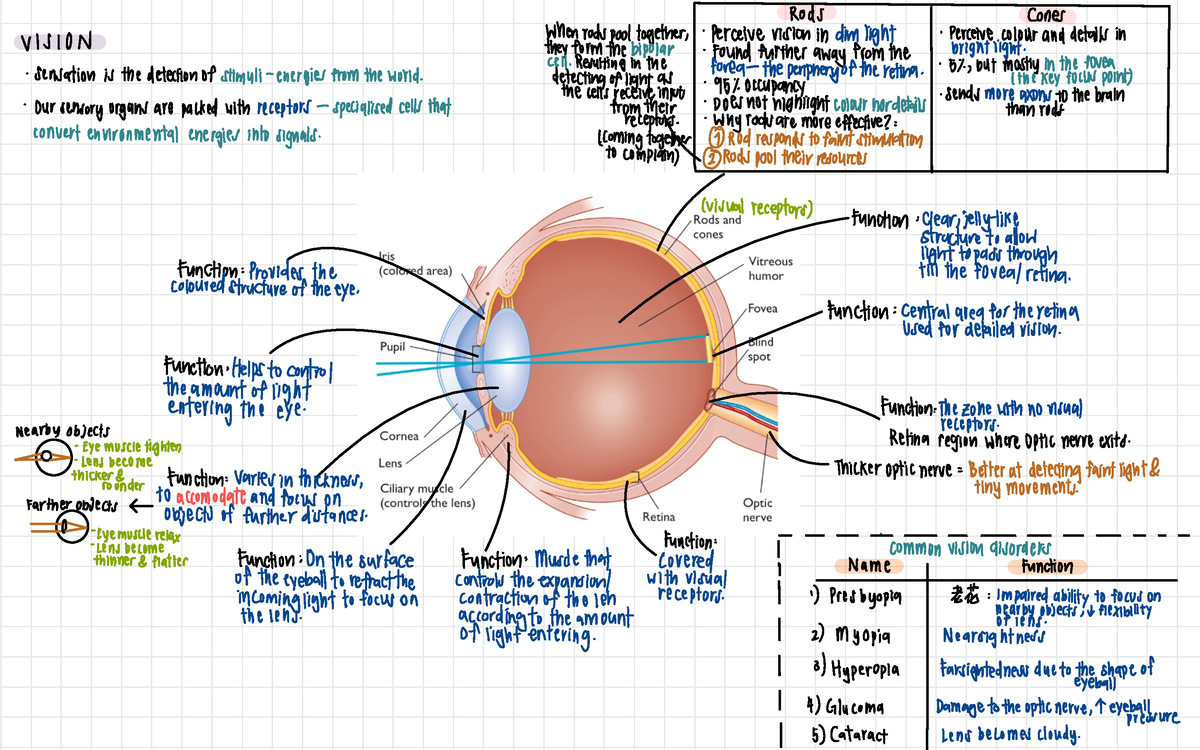 VISION
· Sensation is the detection of stimuli - energies from the world.
· Our sensory organs are packed with receptors — specialised cells that
convert environmental energies into signals.
When rods pool together,
they form the bipolar
cell. Resulting in the
detecting of light as
the cells receive input
from their
receptors.
(coming together
to complain)
Rods
· Perceive vision in dim light
· Found further away from the
fovea — the periphery of the retina.
· 95% occupancy
· Does not highlight colour nor details
· Why rods are more effective?:
① Rod responds to faint stimulation
② Rods pool their resources
Cones
· Perceive colour and details in
bright light.
· 5%, but mostly in the fovea
(the key focus point)
· Sends more axons to the brain
than rods
(visual receptors)
Rods and
cones
Vitreous
humor
Fovea
Blind
spot
Optic
nerve
Retina
Iris
(colored area)
Pupil
Cornea
Lens
Ciliary muscle
(controls the lens)
Function: Provides the
coloured structure of the eye.
Function: Helps to control
the amount of light
entering the eye.
Nearby objects
- Eye muscle tighten
- Lens become
thicker &
rounder
Farther objects
- Eye muscle relax
- Lens become
thinner & flatter
Function: Varies in thickness,
to accomodate and focus on
objects of further distances.
Function: On the surface
of the eyeball to refract the
incoming light to focus on
the lens.
Function: Muscle that
controls the expansion/
contraction of the len
according to the amount
of light entering.
Function:
Covered
with visual
receptors.
Function: Clear, jelly-like
structure to allow
light to pass through
till the fovea/retina.
Function: Central area for the retina
used for detailed vision.
Function: The zone with no visual
receptors.
Retina region where optic nerve exits.
Thicker optic nerve = Better at detecting faint light &
tiny movements.
Common vision disorders
Name
Function
1) Presbyopia
老花: Impaired ability to focus on
nearby objects, ↓ flexibility
of lens.
2) Myopia
Nearsightness
3) Hyperopia
Farsightedness due to the shape of
eyeball
4) Glucoma
Damage to the optic nerve, ↑ eyeball
pressure
5) Cataract
Lens becomes cloudy.